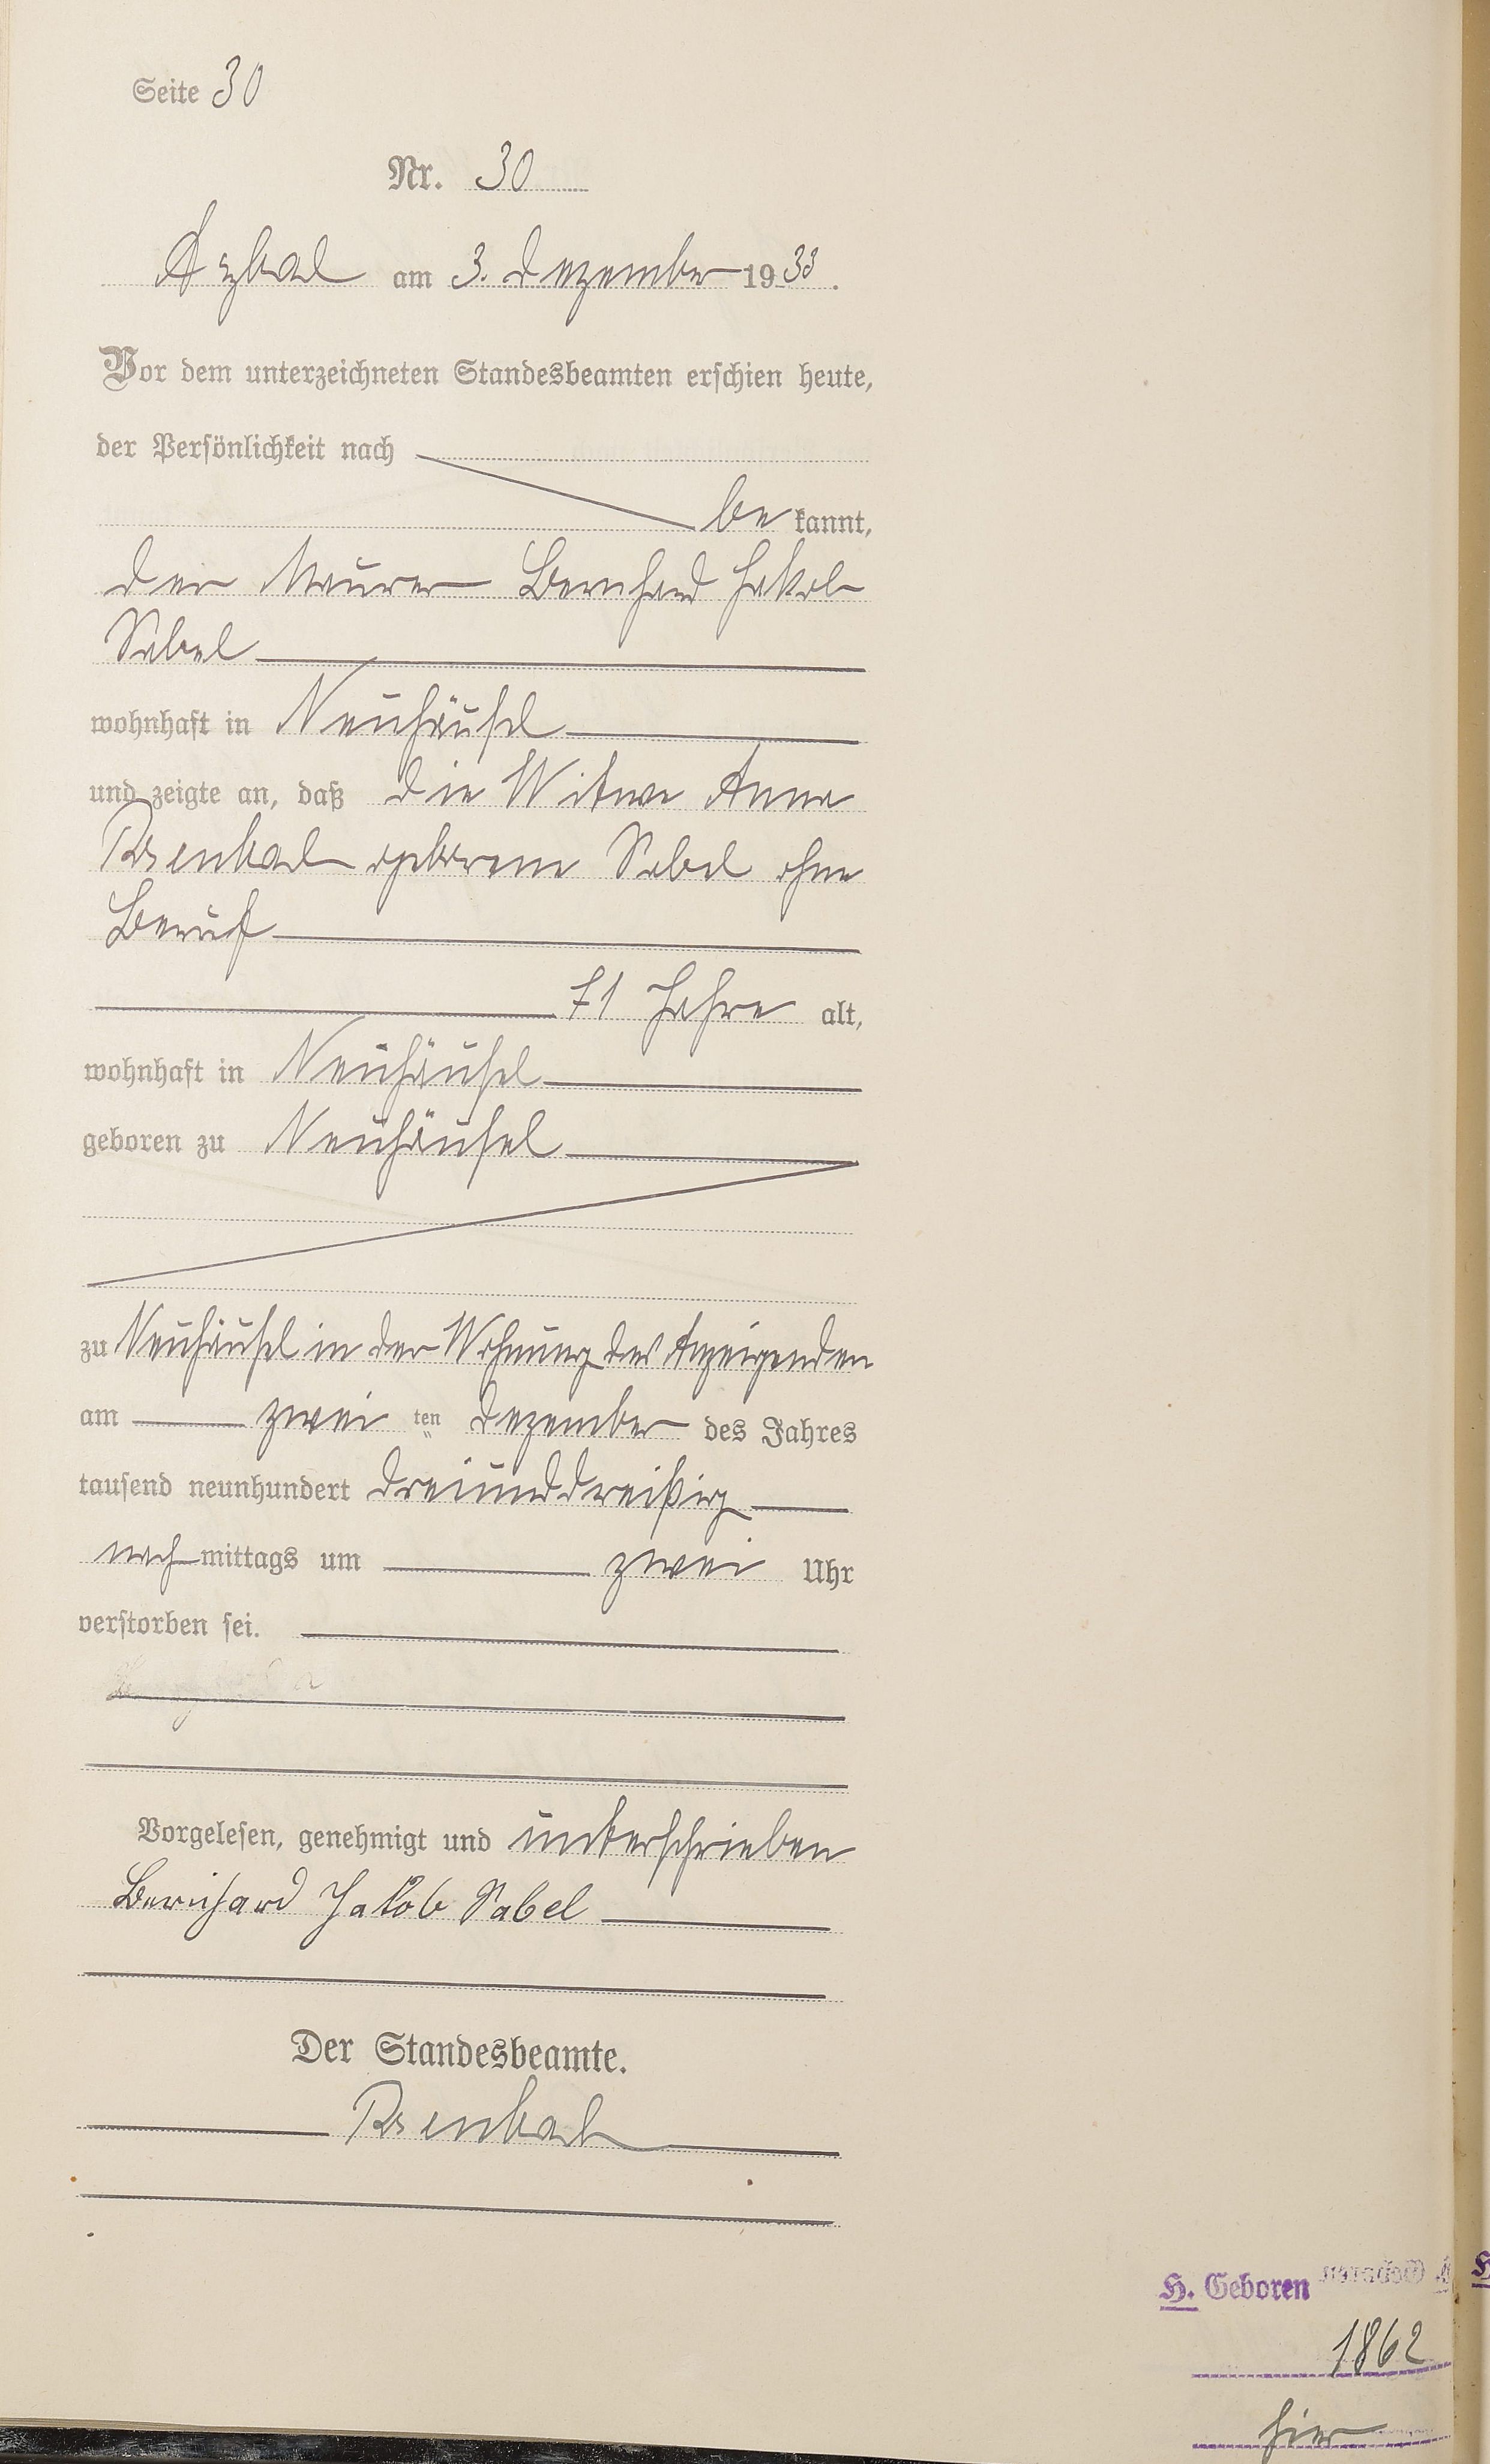 Seite 30
Nr. 30
Arzbach am 3. Dezember 1933.
Vor dem unterzeichneten Standesbeamten erschien heute,
der Persönlichkeit nach
be kannt,
der Maurer Bernhard Jakob
Sabel
wohnhaft in Neuhäusel
und zeigte an, daß die Witwe Anna
Rosenbach geborene Sabel ohne
Beruf
71 Jahre alt,
wohnhaft in Neuhäusel
geboren zu Neuhäusel
zu Neuhäusel in der Wohnung des Anzeigenden
am zwei ten Dezember des Jahres
tausend neunhundert dreiunddreißig
nach mittags um zwei Uhr
verstorben sei.
Vorgelesen, genehmigt und unterschrieben
Bernhard Jakob Sabel
Der Standesbeamte.
Rosenbach
H. Geboren
1862
hier